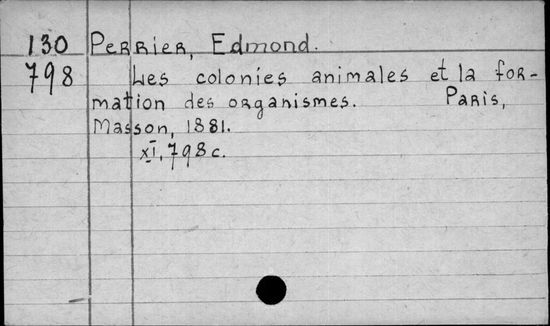 130 Perrier, Edmond.
798 Les colonies animales et la for-
mation des organismes. Paris,
Masson, 1881.
XI, 798 c.